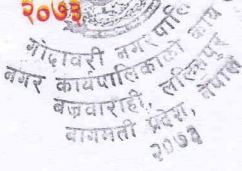 २०७३
गोदावरी नगर पालि
नगर कार्यपालिकाको कार्य
बज्रवाराही, ललितपुर
बागमती प्रदेश, नेपाल
२०७३